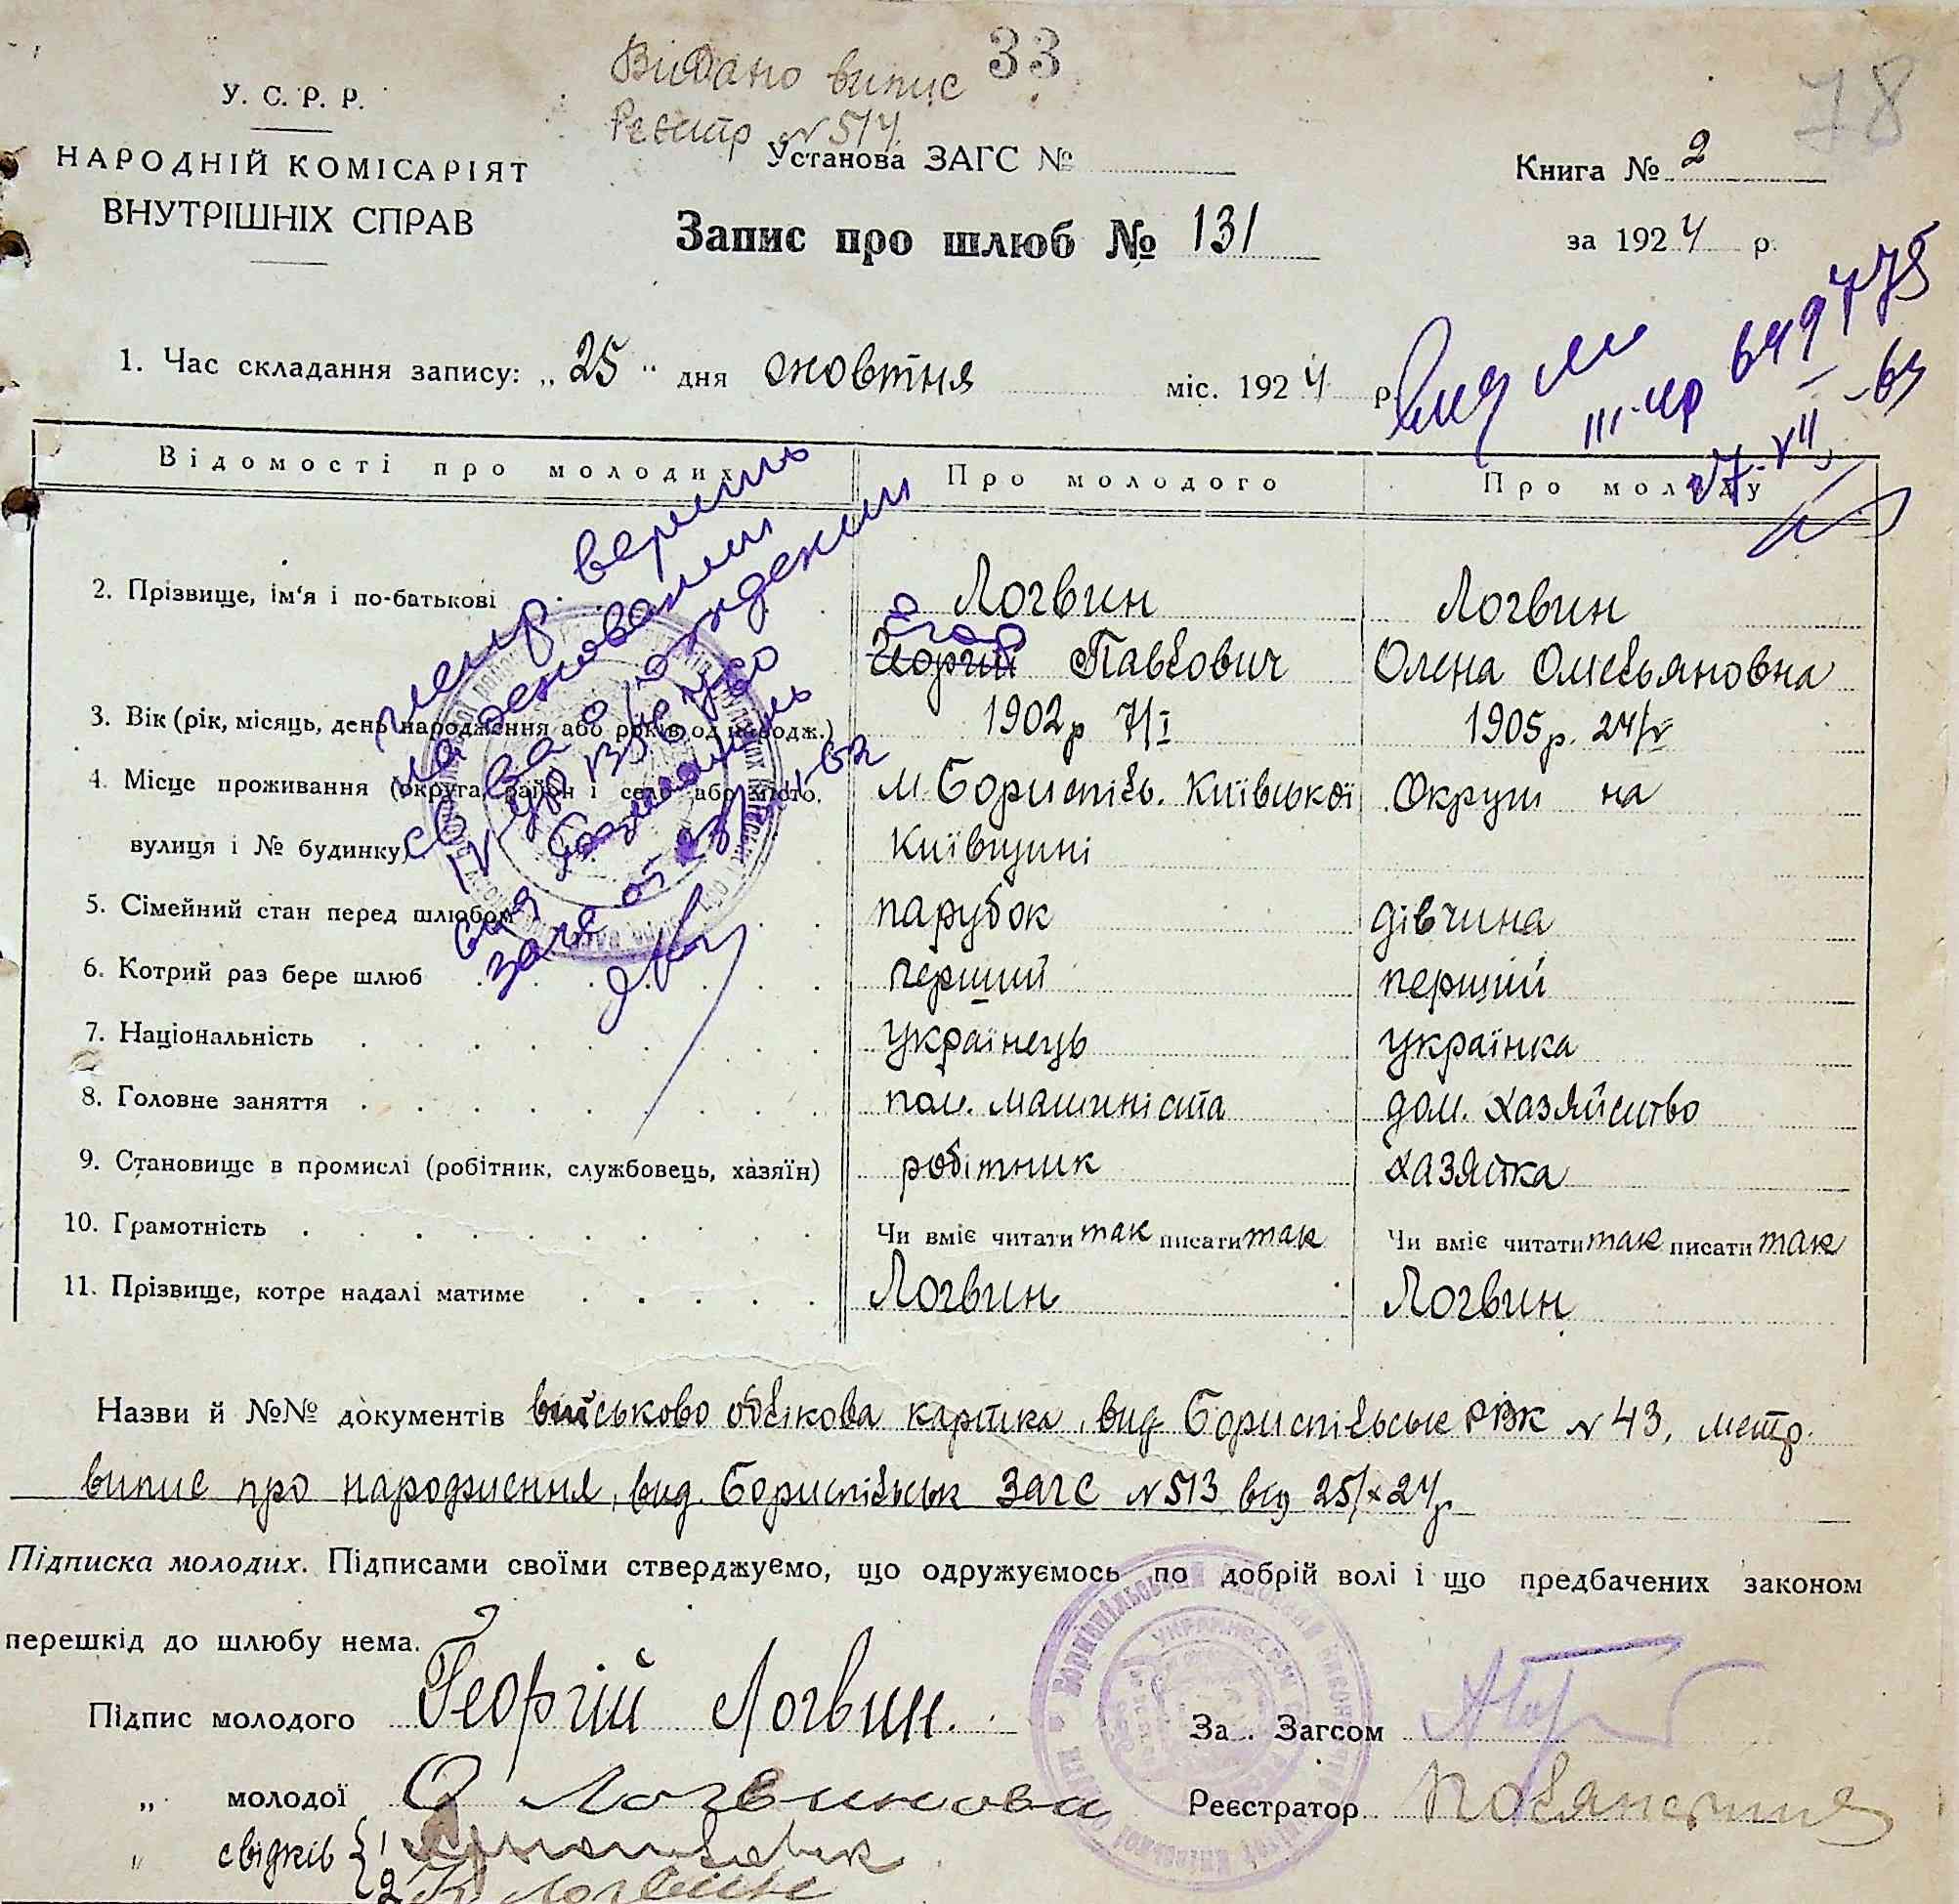 Видано випис 33
Реєстр N 514
78
У. С. Р. Р.
НАРОДНІЙ КОМІСАРІЯТ
ВНУТРІШНІХ СПРАВ
Установа ЗАГС №
Книга № 2
Запис про шлюб № 131
за 1924 р.
1. Час складання запису: „25“ дня жовтня міс. 1924 р.
Відомості про молодих Про молодого Про молоду
2. Прізвище, ім‘я і по-батькові Логвин Логвин
Егор
Георгій Павлович Олена Омельяновна
3. Вік (рік, місяць, день народження або років од народж.) 1902р 7/I 1905р. 24/V
4. Місце проживання (округа, район і село або місто, м. Бориспіль. Київської Округи на
вулиця і № будинку) Київщині
5. Сімейний стан перед шлюбом парубок дівчина
6. Котрий раз бере шлюб перший перший
7. Національність українець українка
8. Головне заняття пом. машиніста дом. хазяйство
9. Становище в промислі (робітник, службовець, хазяїн) робітник хазяйка
10. Грамотність Чи вміє читати так писати так Чи вміє читати так писати так
11. Прізвище, котре надалі матиме Логвин Логвин
Назви й №№ документів військово облікова картка, вид Бориспільськ РВК N 43, метр.
випис про народження, вид. Бориспільськ ЗАГС N 513 від 25/X 24р
Підписка молодих. Підписами своїми стверджуємо, що одружуємось по добрій волі і що предбачених законом
перешкід до шлюбу нема.
Підпис молодого Георгій Логвин.
За Загсом
„ молодої О Логвинова
Реєстратор
„ свідків 1
2 Логвин